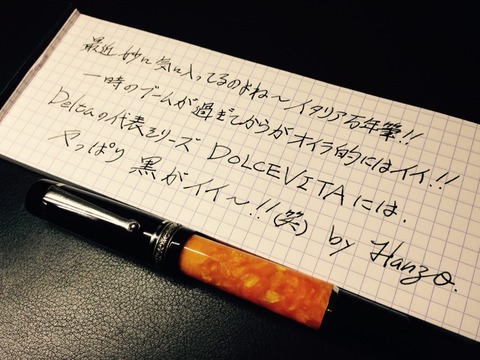 最近妙に気に入ってるのよね〜イタリア万年筆!!
一時のブームが過ぎてからがオイラ的にはイイ!!
Deltaの代表シリーズ DOLCEVITAには.
やっぱり 黒がイイ〜!!(笑) by Hanzo.